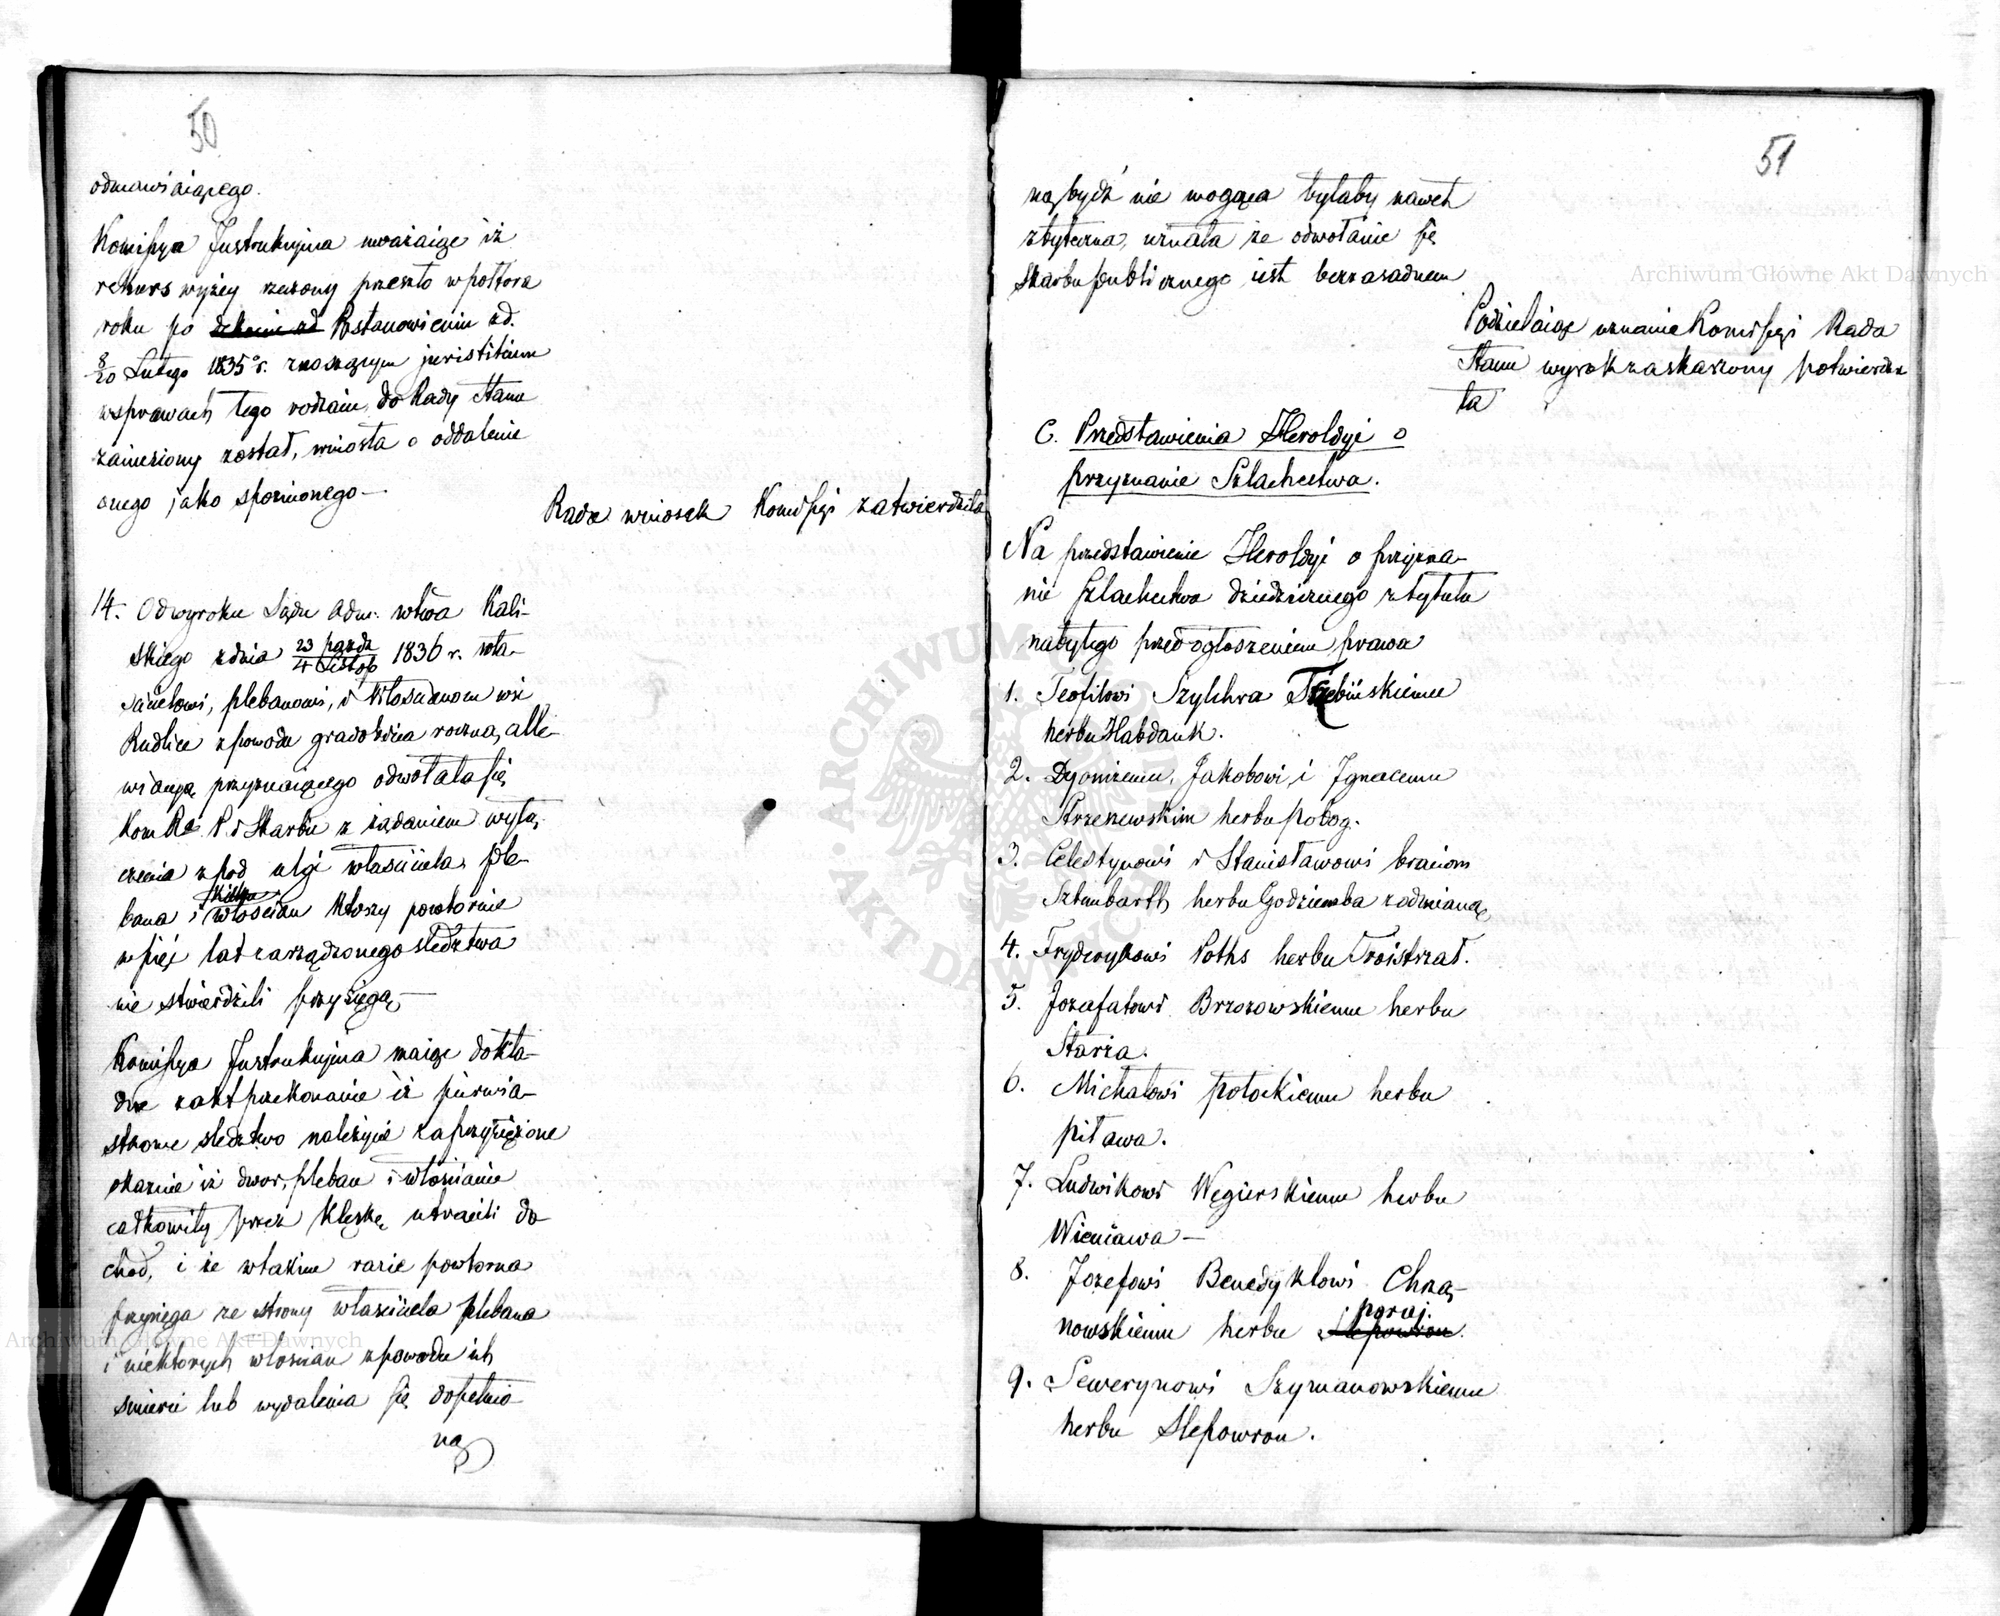 50
odmawiaiącego.
Komissya Instrukcyina uważaiąc iż
rekurs wyżey rzeczony przeszło w połtora
roku po Postanowieniu z d.
8/20 Lutego 1835 r. znoszącym juristitium
w sprawach tego rodzaiu, do Rady Stanu
zaniesiony został, wniosła o oddalenie
onego jako spoznionego —
Rada wniosek Komissyi zatwierdziła
14. Od wyroku Sądu Adm. wtwa Kali-
skiego z dnia 23 pazdz / 4 Listop 1836 r. wła-
scicielowi, plebanowi, i Włoscianom wsi
Rudlice z powodu gradobicia roczną alle-
wiacyą przyznaiącego odwołała się
Kom Rz. P. i Skarbu z żądaniem wyłą-
czenia z pod ulgi własciciela, ple-
bana i kilku włoscian ktorzy powtornie
w pięć lat zarządzonego sledztwa
nie stwierdzili przysięgą —
Komissya Instrukcyina maiąc dokła-
dne z akt przekonanie iż pierwia-
stkowe sledztwo należycie zaprzysiężone
okaznie iż dwor, pleban i włoscianie
całkowity przez klęskę utracili do-
chod, i że w takim razie powtorna
przysięga ze strony własciciela plebana
i niektorych włoscian z powodu ich
smierci lub wydalenia się dopełnio-
ną
51
ną bydź nie mogąca byłaby nawet
zbyteczna, uznała że odwołanie się
Skarbu publicznego iest bezzasadnem
Podzielaiąc uznanie Komissyi Rada
Stanu wyrok zaskarzony potwierdzi
ła
C. Przedstawienia Heroldyi o
przyznanie Szlachectwa.
Na przedstawienie Heroldyi o przyzna-
nie Szlachectwa dziedzicznego z tytułu
nabytego przed ogłoszeniem prawa
1. Teofilowi Szylchra Trzebińskiemu
herbu Habdank.
2. Dyonizemu, Jakobowi, i Ignacemu
Strzeszewskim herbu pobog.
3. Celestynowi i Stanisławowi braciom
Sztumbarth herbu Godziemba z odmianą
4. Fryderykowi Poths herbu Troistrzał.
5. Jozafatowi Brzozowskiemu herbu
Starża.
6. Michałowi potockiemu herbu
pilawa.
7. Ludwikowi Węgierskiemu herbu
Wieniawa —
8. Jozefowi Benedyktowi Chrza-
nowskiemu herbu Slepowron poraj.
9. Sewerynowi Szymanowskiemu
herbu Slepowron.
Archiwum Główne Akt Dawnych
Archiwum Główne Akt Dawnych